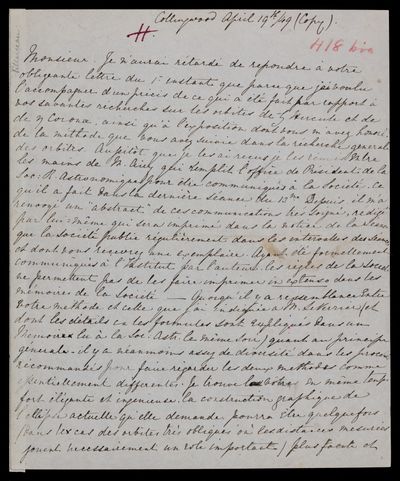 Collingwood April 19th/49 (Copy).
H.
418 bis
Monsieur. Je n'aurai retardé de repondre à votre
obligeante lettre du 1r instant que parce que j'ai voulu
l'accompagner d'un précis de ce qui a été fait par rapport à
vos savantes recherches sur les orbites de ζ Herculis et de
de η Corona, ainsi qu'à l'exposition dont vous m'avez honoré
de la méthode que vous avez suivie dans la recherche general
des orbites. Aussitôt que je les ai reçus je les remis entre
les mains de Mr Airy, qui remplit l'office de President de la
Soc: R. Astronomique pour être communiqués à la Société. Ce
qu'il a fait dans la dernière séance du 13me. Depuis il m'a
renvoyé un abstract de ces communications très soigné, redigé
par lui-même qui sera imprimé dans la notice de la
que la société publie régulièrement dans les intervalles des séances
et dont vous recevrez une exemplaire. Ayant été formellement
communiqués à l'Institut par l'auteur les règles de la Société
ne permettent pas de les faire imprimer in extenso dans les
mémoires de la Société — Quoiqu'il y a ressemblance entre
votre méthode et celle que j'ai à Mr. (et
dont les détails en les formules sont expliqués dans un
Memoire lu à la Soc. Astr. le même soir) quant au principe
général: il y a néanmoins assez de diversité dans les procédés
recommandés pour faire regarder les deux methodes comme
essentiellement differentes. Je trouve la votre en même temps
fort élégante et ingenieuse. La construction graphique de
l'ellipse actuelle qu'elle demande pourra être quelquefois
(dans les cas des orbites très obliques où les distances mesurées
jouent necessairement un rôle important) plus facile et